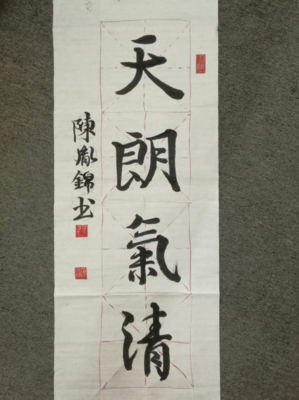 天朗氣清
陳胤錦书